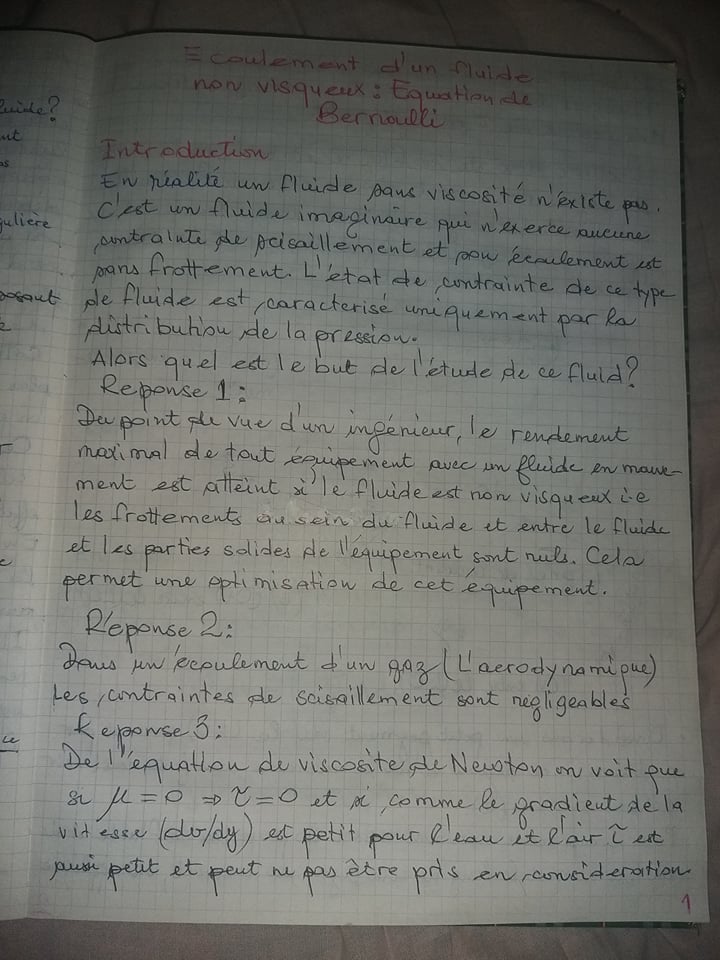 Ecoulement d'un fluide
non visqueux : Equation de
Bernoulli
Introduction
En réalité un fluide sans viscosité n'éxiste pas.
C'est un fluide imaginaire qui n'exerce aucune
contrainte de scisaillement et son écoulement est
sans frottement. L'état de contrainte de ce type
de fluide est caracterisé uniquement par la
distribution de la pression.
Alors quel est le but de l'étude de ce fluid?
Reponse 1 :
Du point de vue d'un ingénieur, le rendement
maximal de tout équipement avec un fluide en mouve-
ment est atteint si le fluide est non visqueux i.e
les frottements au sein du fluide et entre le fluide
et les parties solides de l'équipement sont nuls. Cela
permet une optimisation de cet équipement.
Réponse 2 :
Dans un écoulement d'un gaz (L'aerodynamique)
Les contraintes de scisaillement sont negligeables
Reponse 3 :
De l'équation de viscosite de Newton on voit que
si μ = 0 ⇒ τ = 0 et si comme le gradient de la
vitesse (dv/dy) est petit pour l'eau et l'air τ est
aussi petit et peut ne pas être pris en consideration
1
luide?
nt
gulière
posant
ce